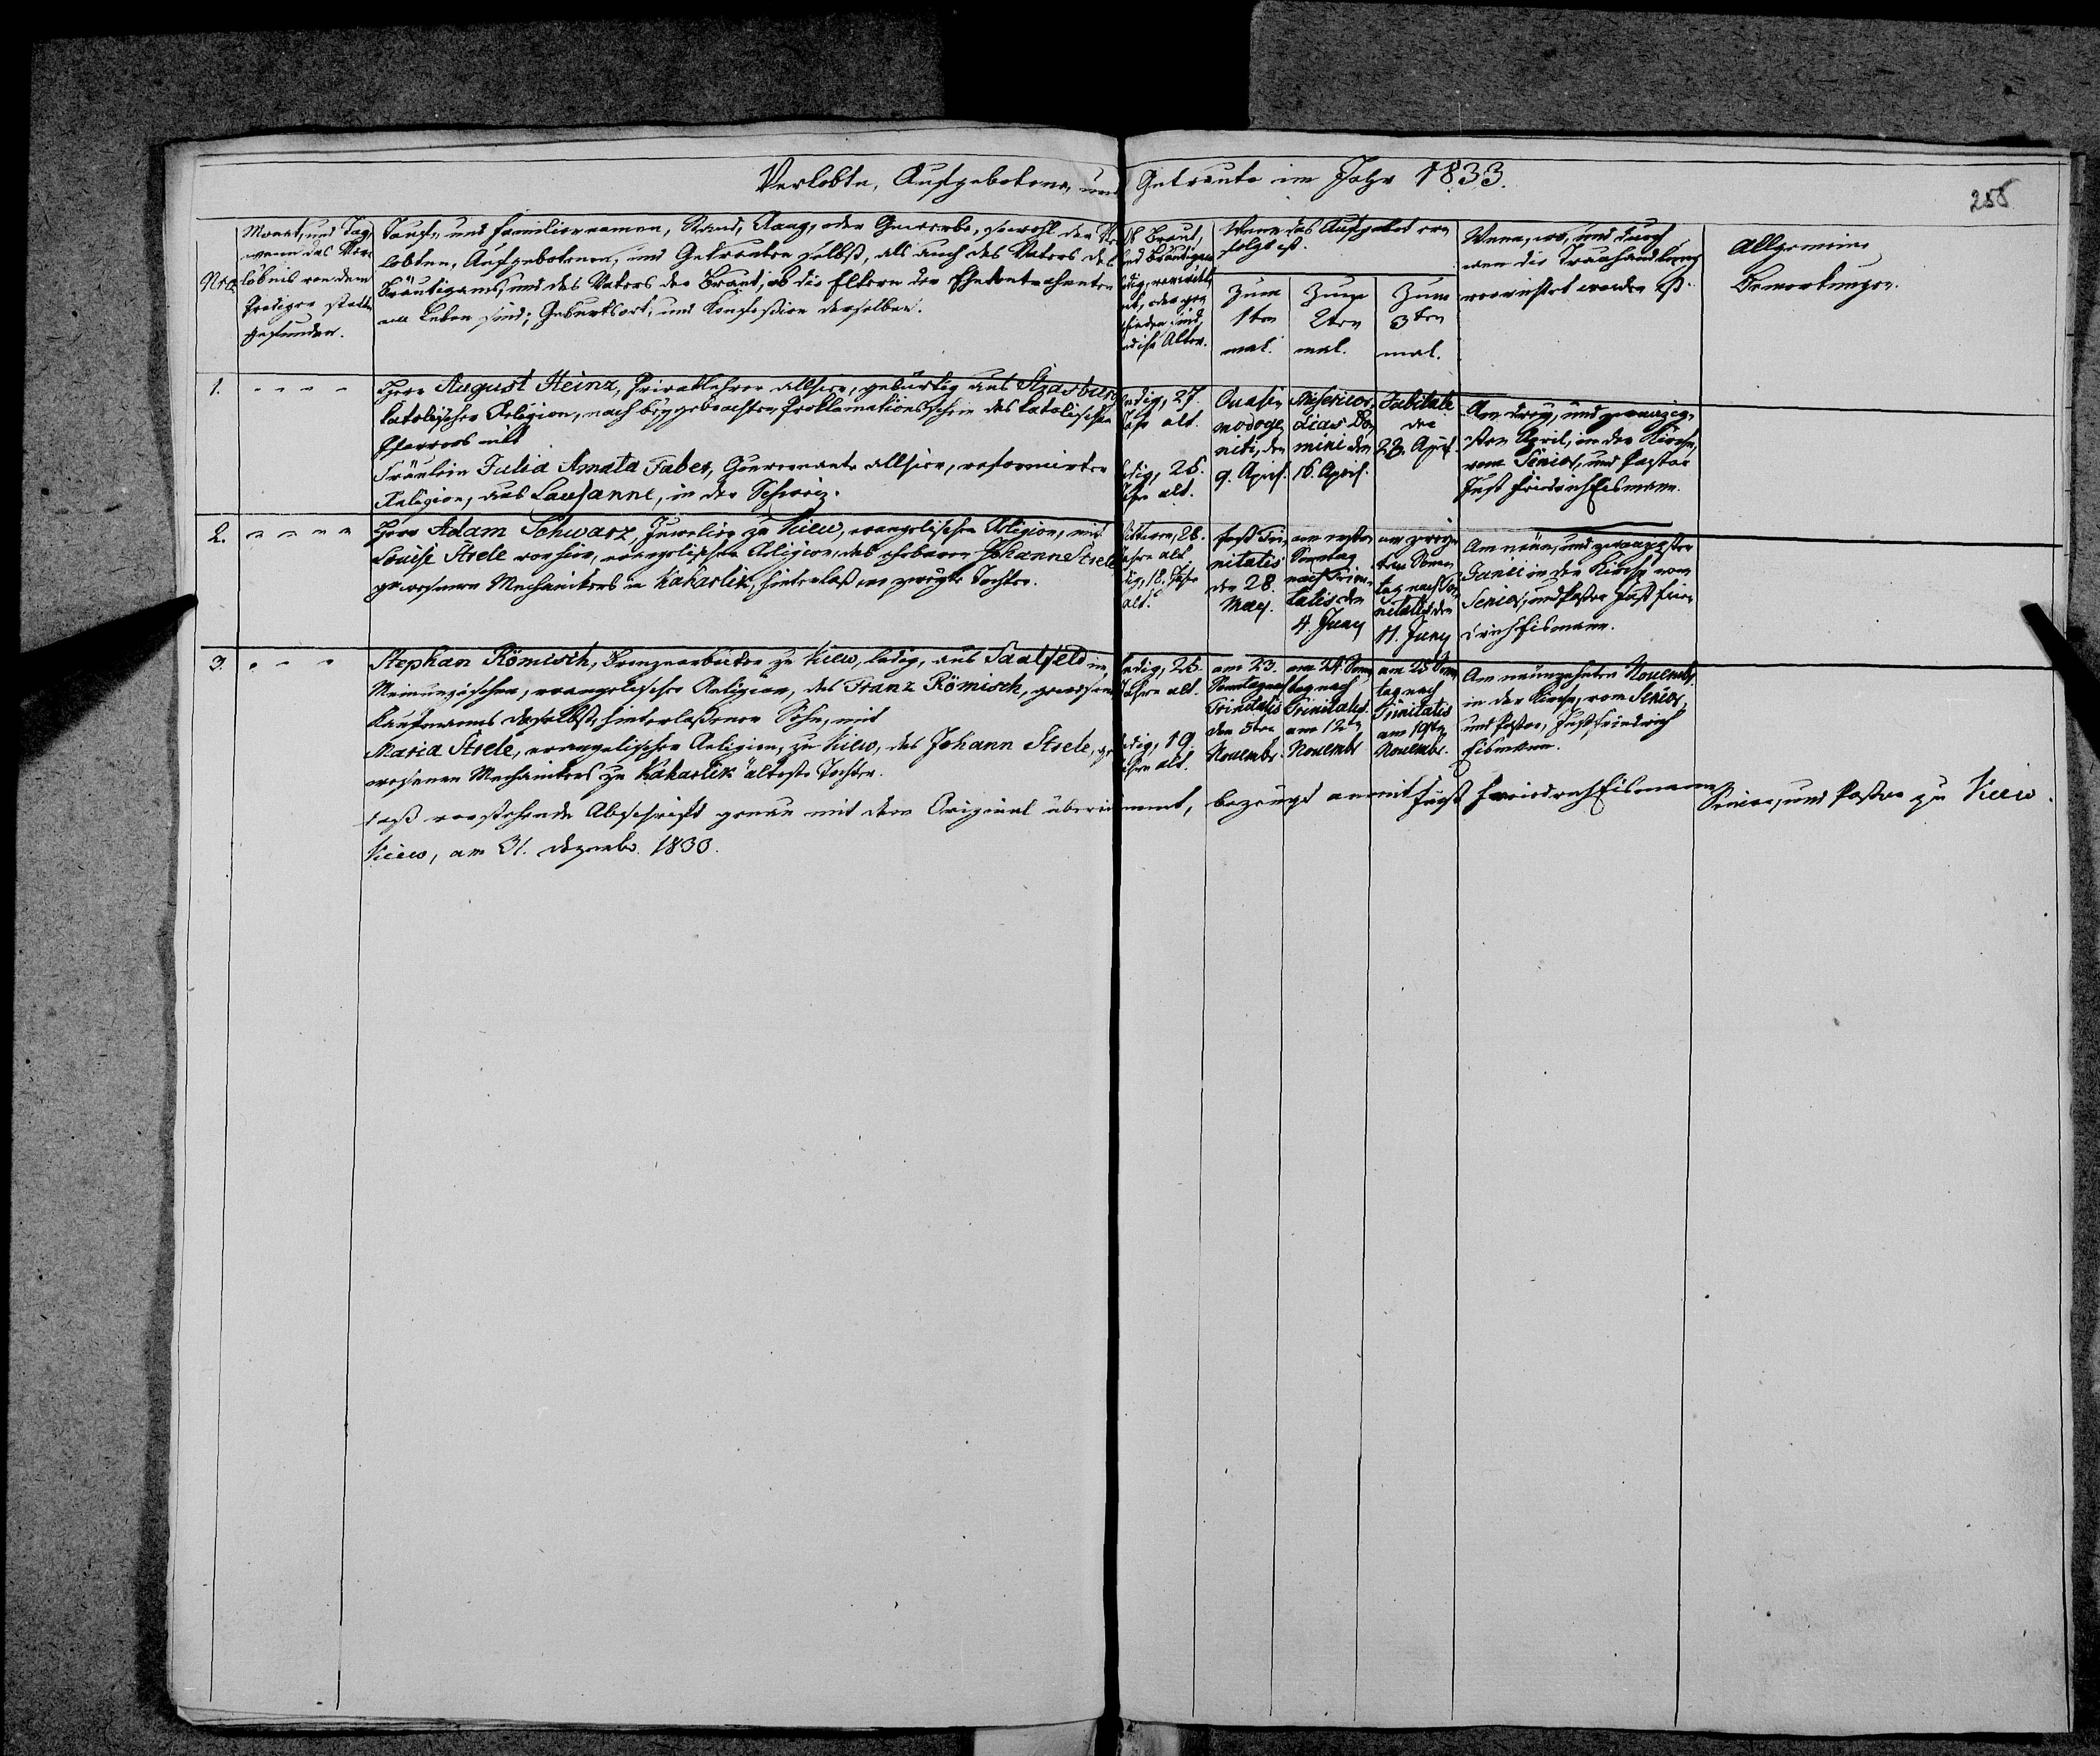 Verlobte, Aufgebotene, und Getraute im Jahr 1833.
258
Nro.
Monat, und Tag,
wann das Ver-
löbnis von dem
Prediger statt
gefunden.
Tauf- und Familiennamen, Stand, Rang, oder Gewerbe, sowohl der Ver-
lobten, Aufgebotenen, und Getrauten selbst, als auch des Vaters des
Bräutigams, und des Vaters der Braut, ob die Eltern der
am Leben sind; Geburtsort, und Konfession derselben.
Ob Braut,
und Bräutigam
ledig, verwittwet
oder ge-
schieden sind,
und ihr Alter.
Wann das Aufgebot er-
folgt ist.
Zum
1ten
mal.
Zum
2ten
mal.
Zum
3ten
mal.
Wann, wo, und durch
wen die Trauhandlung
verrichtet worden ist.
Allgemeine
Bemerkungen.
1.
Herr August Heinz, Privatlehrer allhier, gebürtig aus
katolischer Religion, nach beygebrachten Proklamationsschein des katolischen
Pfarrers mit
Fräulein Julia Amata Faber, Gouvernante allhier, reformirter
Religion, aus Lausanne, in der Schweiz.
ledig, 27
Jahr alt.
ledig, 26.
Jahre alt.
Quasi-
modoge-
niti, den
9. April.
Misericor-
dias Do-
mini den
16. April.
Jubilate
den
23. April.
Am drey, und zwanzig-
sten April, in der Kirche,
vom Senior, und Pastor
Just Friedrich Eismann.
2.
Herr Adam Schwarz, Juwelier zu Kiew, evangelischer Religion, mit
Louise Strele von hier, evangelischer Religion, des Johann Strele
gewesenen Mechanikers in Kaharlik, hinterlassene zweyte Tochter.
Wittwer, 28.
Jahre alt
ledig, 18. Jahr
alt.
Fest Tri-
nitatis
den 28.
May.
am ersten
Sonntag
nach Trini-
tatis den
4. Juny
am zwey-
ten Sonn-
tag nach Tri-
nitatis den
11. Juny
Am neun, und zwanzigsten
Junii in der Kirche vom
Senior, und Pastor Just Frie-
drich Eismann.
3.
Stephan Römisch, Bronzearbeiter zu Kiew, ledig, aus Saalfeld im
Meinungischen, evangelischer Religion, des Franz Römisch, gewesenen
Kaufmanns daselbst, hinterlassener Sohn, mit
Maria Strele, evangelischer Religion, zu Kiew, des Johann Strele, ge-
wesenen Mechanikers zu Kaharlik älteste Tochter.
ledig, 26.
Jahre alt.
ledig, 19
Jahre alt.
am 23.
Sonntag nach
Trinitatis
den 5ten
Novembr.
am 24. Sonn-
tag nach
Trinitatis
am 12ten
Novembr.
am 25 Sonn-
tag nach
Trinitatis
am 19ten
Novembr.
Am neunzehnten Novembr.
in der Kirche, vom Senior,
und Pastor, Just Friedrich
Eismann.
Daß vorstehende Abschrift genau mit dem Original übereinstimmt, bezeugt anmit Just Friedrich Eismann Senior, und Pastor zu Kiew.
Kiew, am 31. Dezembr. 1833.